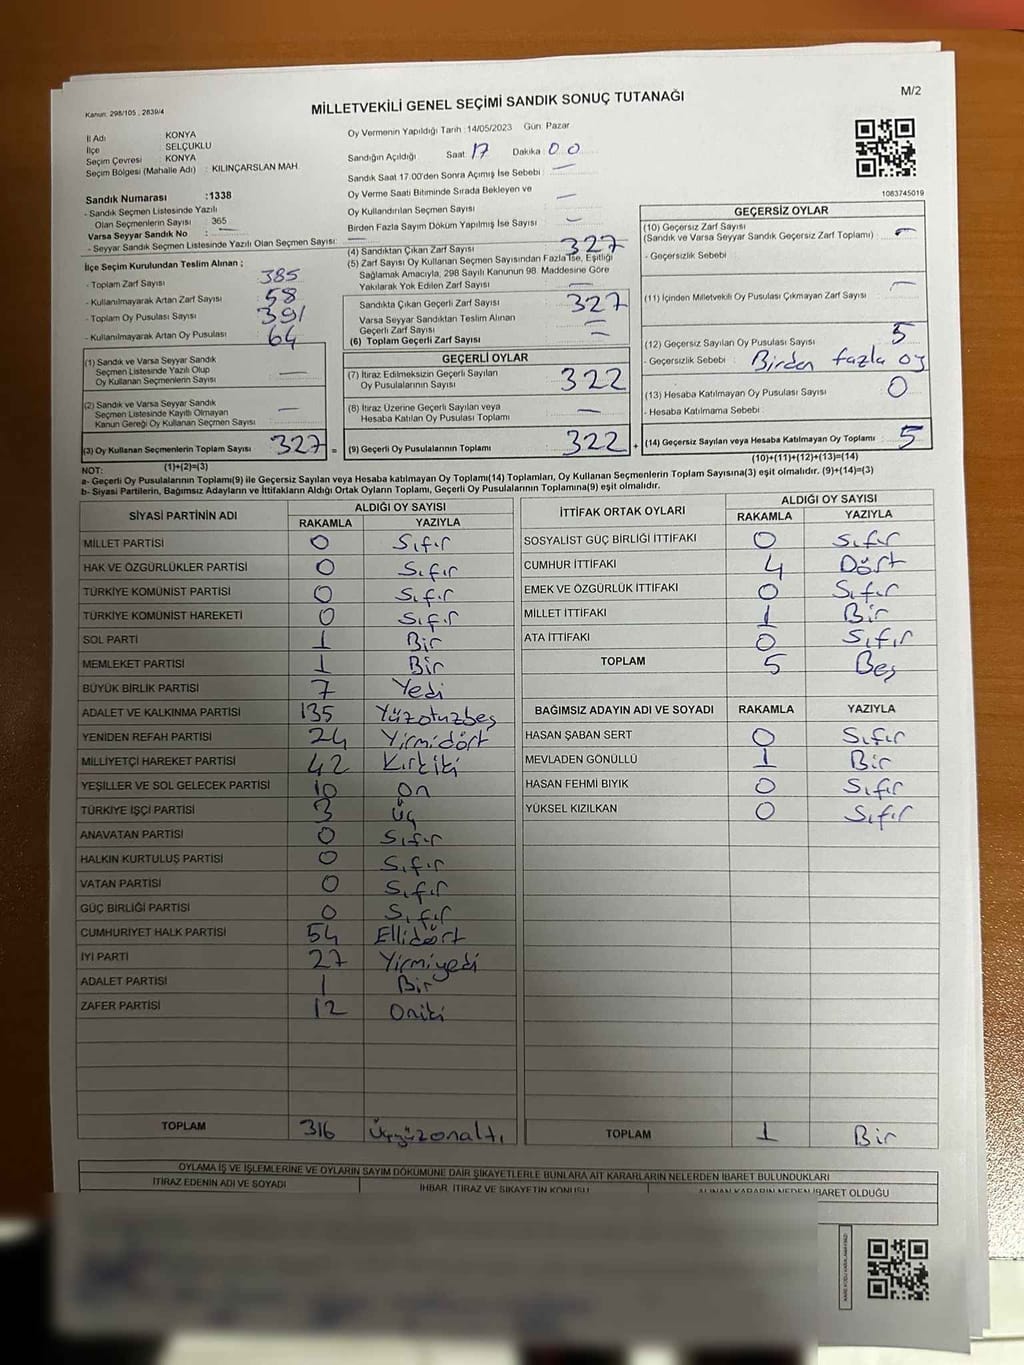 Kanun: 298/105 , 2839/4
MİLLETVEKİLİ GENEL SEÇİMİ SANDIK SONUÇ TUTANAĞI
M/2
İl Adı : KONYA
İlçe : SELÇUKLU
Seçim Çevresi : KONYA
Seçim Bölgesi (Mahalle Adı) : KILINÇARSLAN MAH.
Sandık Numarası :1338
- Sandık Seçmen Listesinde Yazılı
Olan Seçmenlerin Sayısı : 365
Varsa Seyyar Sandık No : —
- Seyyar Sandık Seçmen Listesinde Yazılı Olan Seçmen Sayısı: —
Oy Vermenin Yapıldığı Tarih :14/05/2023 Gün: Pazar
Sandığın Açıldığı Saat 17 Dakika 00
Sandık Saat 17.00'den Sonra Açımış İse Sebebi : —
Oy Verme Saati Bitiminde Sırada Bekleyen ve
Oy Kullandırılan Seçmen Sayısı —
Birden Fazla Sayım Döküm Yapılmış İse Sayısı : —
1083745019
İlçe Seçim Kurulundan Teslim Alınan ;
- Toplam Zarf Sayısı : 385
- Kullanılmayarak Artan Zarf Sayısı : 58
- Toplam Oy Pusulası Sayısı : 391
- Kullanılmayarak Artan Oy Pusulası : 64
(1) Sandık ve Varsa Seyyar Sandık
Seçmen Listesinde Yazılı Olup
Oy Kullanan Seçmenlerin Sayısı —
(2) Sandık ve Varsa Seyyar Sandık
Seçmen Listesinde Kayıtlı Olmayan
Kanun Gereği Oy Kullanan Seçmen Sayısı —
(3) Oy Kullanan Seçmenlerin Toplam Sayısı 327
(1)+(2)=(3)
(4) Sandıktan Çıkan Zarf Sayısı : 327
(5) Zarf Sayısı Oy Kullanan Seçmen Sayısından Fazla İse, Eşitliği
Sağlamak Amacıyla, 298 Sayılı Kanunun 98. Maddesine Göre
Yakılarak Yok Edilen Zarf Sayısı : —
Sandıkta Çıkan Geçerli Zarf Sayısı : 327
Varsa Seyyar Sandıktan Teslim Alınan
Geçerli Zarf Sayısı : —
(6) Toplam Geçerli Zarf Sayısı : —
GEÇERLİ OYLAR
(7) İtiraz Edilmeksizin Geçerli Sayılan
Oy Pusulalarının Sayısı : 322
(8) İtiraz Üzerine Geçerli Sayılan veya
Hesaba Katılan Oy Pusulası Toplamı : —
= (9) Geçerli Oy Pusulalarının Toplamı : 322 +
GEÇERSİZ OYLAR
(10) Geçersiz Zarf Sayısı
(Sandık ve Varsa Seyyar Sandık Geçersiz Zarf Toplamı) : —
- Geçersizlik Sebebi :
(11) İçinden Milletvekili Oy Pusulası Çıkmayan Zarf Sayısı : —
(12) Geçersiz Sayılan Oy Pusulası Sayısı : 5
- Geçersizlik Sebebi : Birden fazla oy
(13) Hesaba Katılmayan Oy Pusulası Sayısı : 0
- Hesaba Katılmama Sebebi :
(14) Geçersiz Sayılan veya Hesaba Katılmayan Oy Toplamı : 5
(10)+(11)+(12)+(13)=(14)
NOT:
a- Geçerli Oy Pusulalarının Toplamı(9) ile Geçersiz Sayılan veya Hesaba katılmayan Oy Toplamı(14) Toplamları, Oy Kullanan Seçmenlerin Toplam Sayısına(3) eşit olmalıdır. (9)+(14)=(3)
b- Siyasi Partilerin, Bağımsız Adayların ve İttifakların Aldığı Ortak Oyların Toplamı, Geçerli Oy Pusulalarının Toplamına(9) eşit olmalıdır.
SİYASİ PARTİNİN ADI ALDIĞI OY SAYISI
RAKAMLA YAZIYLA
MİLLET PARTİSİ 0 Sıfır
HAK VE ÖZGÜRLÜKLER PARTİSİ 0 Sıfır
TÜRKİYE KOMÜNİST PARTİSİ 0 Sıfır
TÜRKİYE KOMÜNİST HAREKETİ 0 Sıfır
SOL PARTİ 1 Bir
MEMLEKET PARTİSİ 1 Bir
BÜYÜK BİRLİK PARTİSİ 7 Yedi
ADALET VE KALKINMA PARTİSİ 135 Yüzotuzbeş
YENİDEN REFAH PARTİSİ 24 Yirmidört
MİLLİYETÇİ HAREKET PARTİSİ 42 Kırkiki
YEŞİLLER VE SOL GELECEK PARTİSİ 10 On
TÜRKİYE İŞÇİ PARTİSİ 3 Üç
ANAVATAN PARTİSİ 0 Sıfır
HALKIN KURTULUŞ PARTİSİ 0 Sıfır
VATAN PARTİSİ 0 Sıfır
GÜÇ BİRLİĞİ PARTİSİ 0 Sıfır
CUMHURİYET HALK PARTİSİ 54 Ellidört
İYİ PARTİ 27 Yirmiyedi
ADALET PARTİSİ 1 Bir
ZAFER PARTİSİ 12 Oniki
TOPLAM 316 Üçyüzonaltı
İTTİFAK ORTAK OYLARI ALDIĞI OY SAYISI
RAKAMLA YAZIYLA
SOSYALİST GÜÇ BİRLİĞİ İTTİFAKI 0 Sıfır
CUMHUR İTTİFAKI 4 Dört
EMEK VE ÖZGÜRLÜK İTTİFAKI 0 Sıfır
MİLLET İTTİFAKI 1 Bir
ATA İTTİFAKI 0 Sıfır
TOPLAM 5 Beş
BAĞIMSIZ ADAYIN ADI VE SOYADI RAKAMLA YAZIYLA
HASAN ŞABAN SERT 0 Sıfır
MEVLADEN GÖNÜLLÜ 1 Bir
HASAN FEHMİ BIYIK 0 Sıfır
YÜKSEL KIZILKAN 0 Sıfır
TOPLAM 1 Bir
OYLAMA İŞ VE İŞLEMLERİNE VE OYLARIN SAYIM DÖKÜMÜNE DAİR ŞİKAYETLERLE BUNLARA AİT KARARLARIN NELERDEN İBARET BULUNDUKLARI
İTİRAZ EDENİN ADI VE SOYADI İHBAR, İTİRAZ VE ŞİKAYETİN KONUSU ALINAN KARARIN NEDEN İBARET OLDUĞU